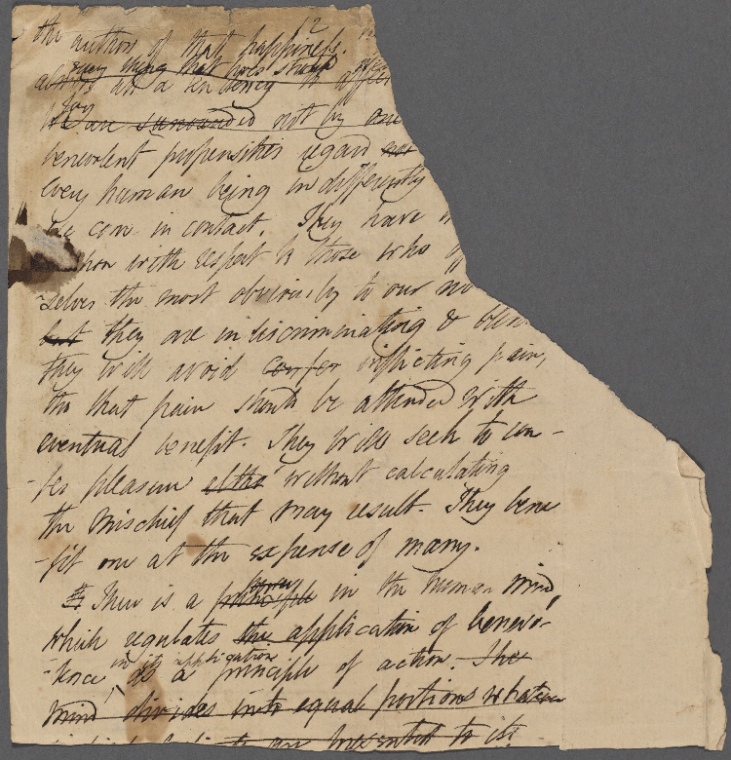 12
the author of that happiness.
every thing that lives should
actions all a tendency to
For
We are surrounded not by one
benevolent propensities regard not
every human being indifferently
we come in contact. They have
with respect to those who
-selves the most obviously to our
but they are indiscriminating &
they will avoid confer inflicting pain,
tho that pain should be attended with
eventual benefit. They will seek to con-
-fer pleasure without calculating
the mischief that may result. They bene
-fit one at the expense of many.
There is a principle in the human mind,
which regulates the application of benevo-
in its application
-lence as a principle of action. The
mind divides into equal portions
are presented to its